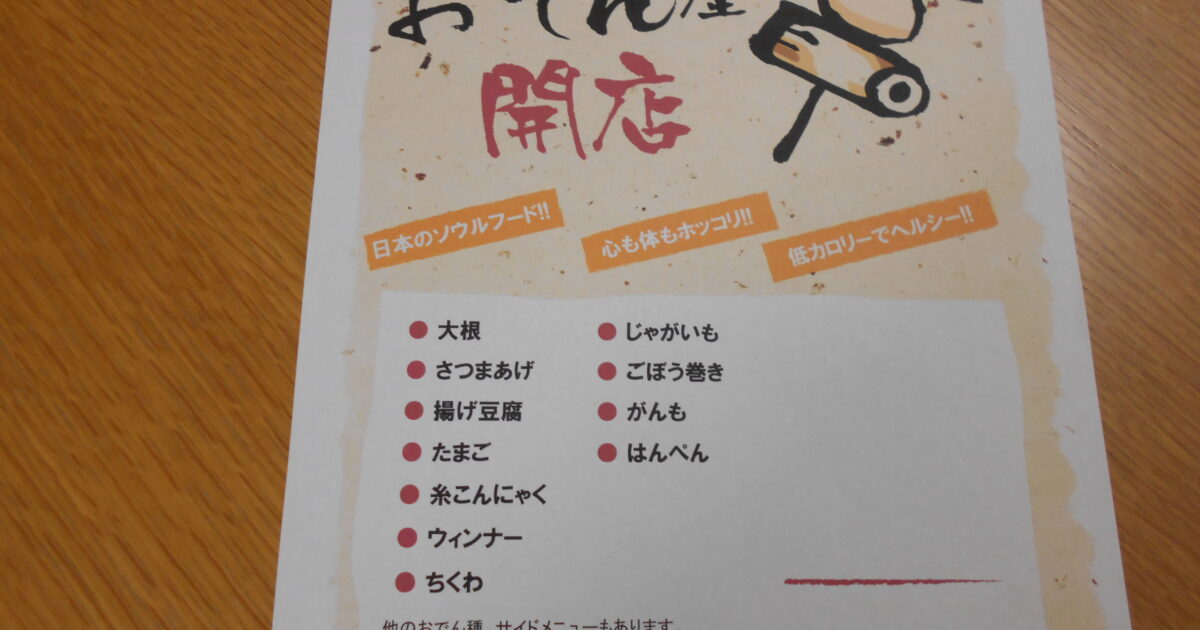 おでん屋
開店
日本のソウルフード!!
心も体もホッコリ!!
低カロリーでヘルシー!!
● 大根
● さつまあげ
● 揚げ豆腐
● たまご
● 糸こんにゃく
● ウィンナー
● ちくわ
● じゃがいも
● ごぼう巻き
● がんも
● はんぺん
他のおでん種、サイドメニューもあります。